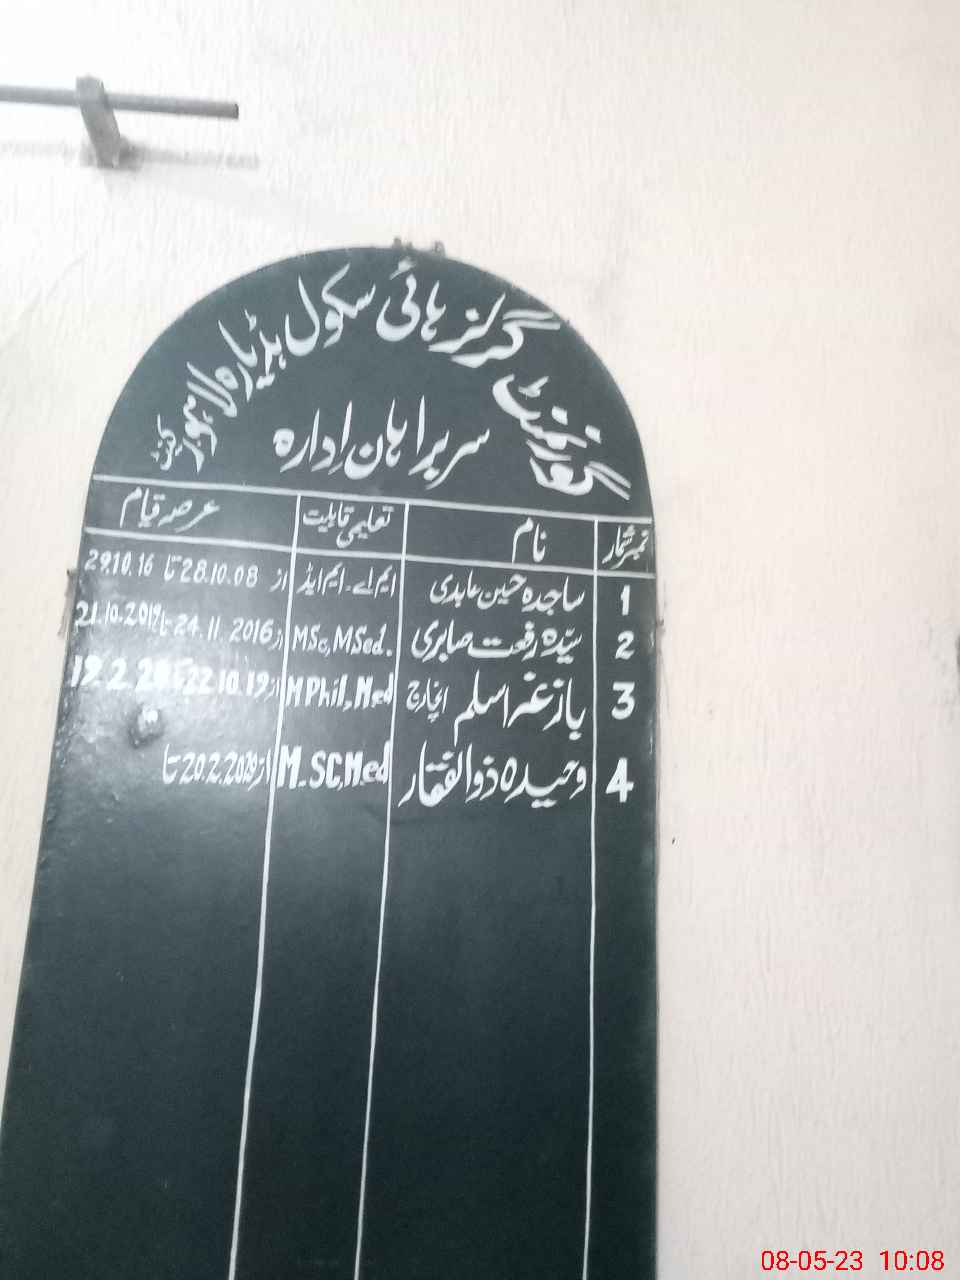 گورنمنٹ گرلز ہائی سکول ہڈیارہ لاہور کینٹ
سربراہان اِدارہ
نمبر شمار نام تعلیمی قابلیت عرصہ قیام
1 ساجدہ حسین عابدی ایم اے۔ ایم ایڈ از 28.10.08 تا 29.10.16
2 سیّدہ رفعت صابری MSc, MSed. از 24.11.2016 تا 21.10.2019
3 بازغہ اسلم انچارج M Phil, Med از 22.10.19 تا 19.2.20
4 وحیدہ ذوالفقار M.SC, M.ed از 20.2.2020 تا
08-05-23 10:08